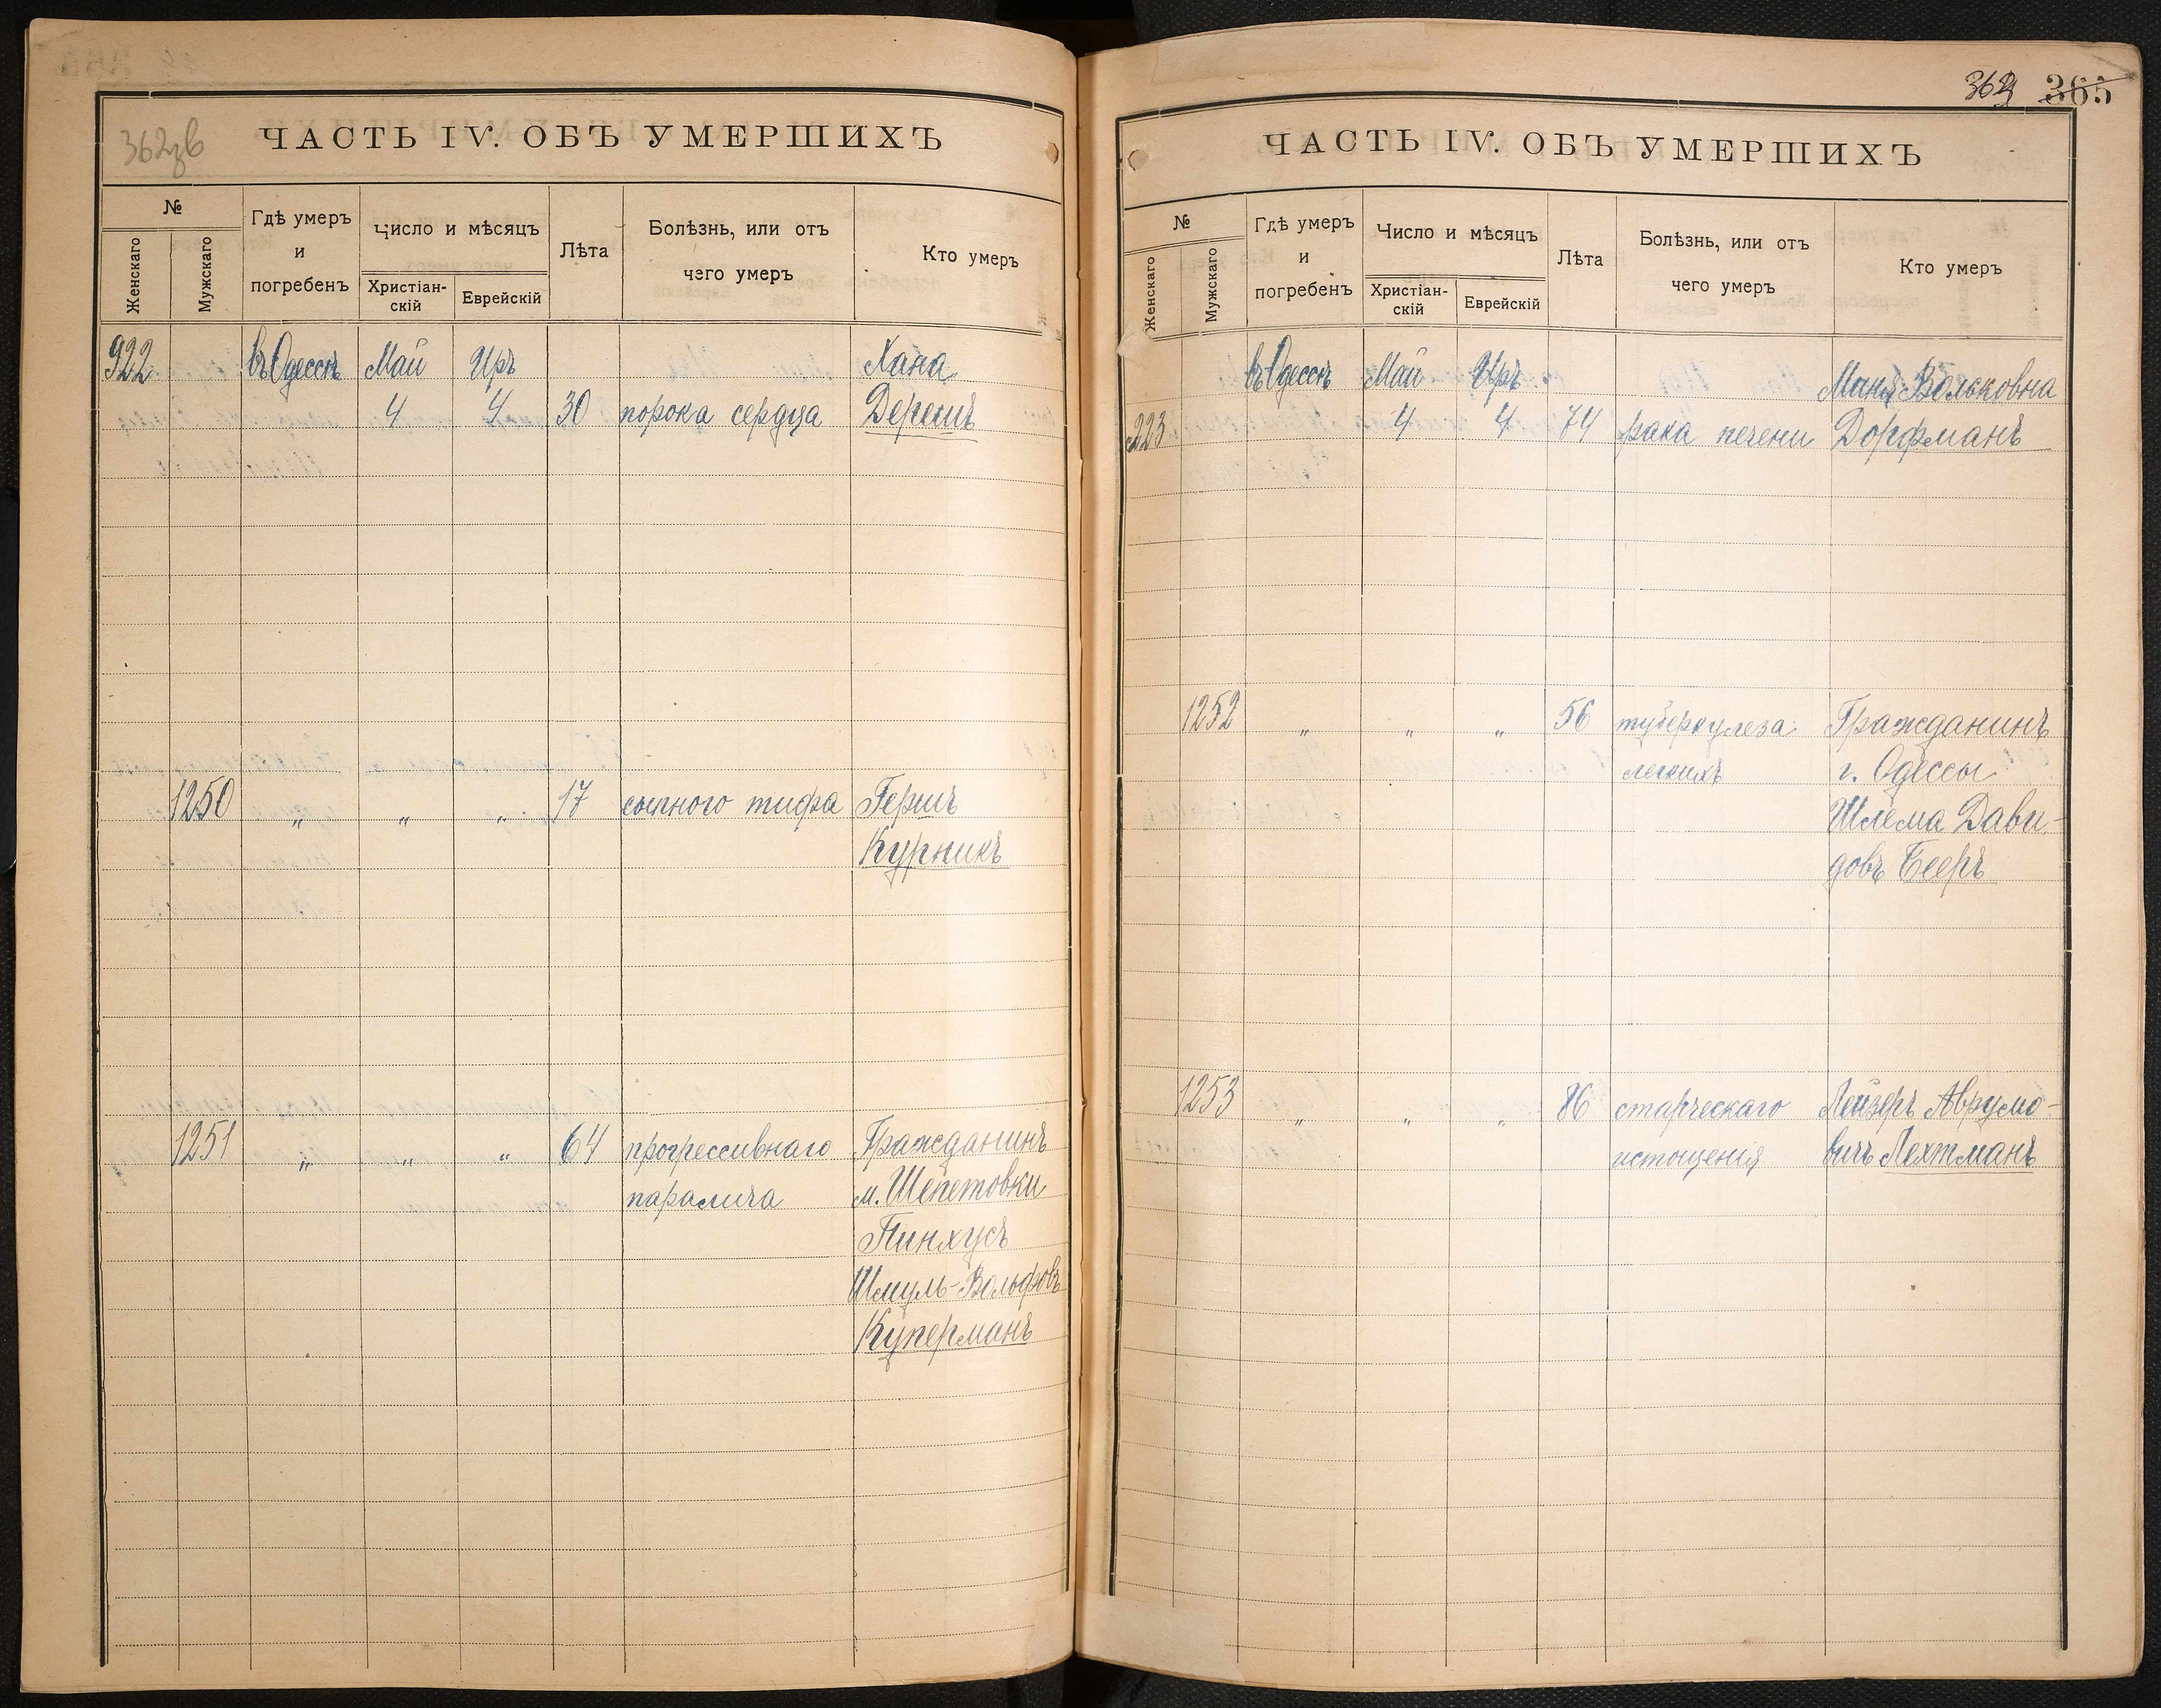 362 зв
ЧАСТЬ IV. ОБЪ УМЕРШИХЪ
№
Женскаго
Мужскаго
Гдѣ умеръ
и
погребенъ
Число и мѣсяцъ
Христіан-
скій
Еврейскій
Лѣта
Болѣзнь, или отъ
чего умеръ
Кто умеръ
922 въ Одессѣ Май Иръ Хана
4 4 30 порока сердца Дерешъ
1250 " " " 17 сыпного тифа Гершъ
Курникъ
1251 " " " 64 прогрессивнаго Гражданинъ
паралича м. Шепетовки
Пинхусъ
Шмуль-Вольфовъ
Куперманъ
363 365
ЧАСТЬ IV. ОБЪ УМЕРШИХЪ
№
Женскаго
Мужскаго
Гдѣ умеръ
и
погребенъ
Число и мѣсяцъ
Христіан-
скій
Еврейскій
Лѣта
Болѣзнь, или отъ
чего умеръ
Кто умеръ
въ Одессѣ Май Иръ Маня Вольковна
223 4 4 74 рака печени Дорфманъ
1252 " " " 56 туберкулеза Гражданинъ
легкихъ г. Одессы
Шлема Дави-
довъ Бееръ
1253 " " " 86 старческаго Лейзеръ Аврумо-
истощенія вичъ Лехтманъ